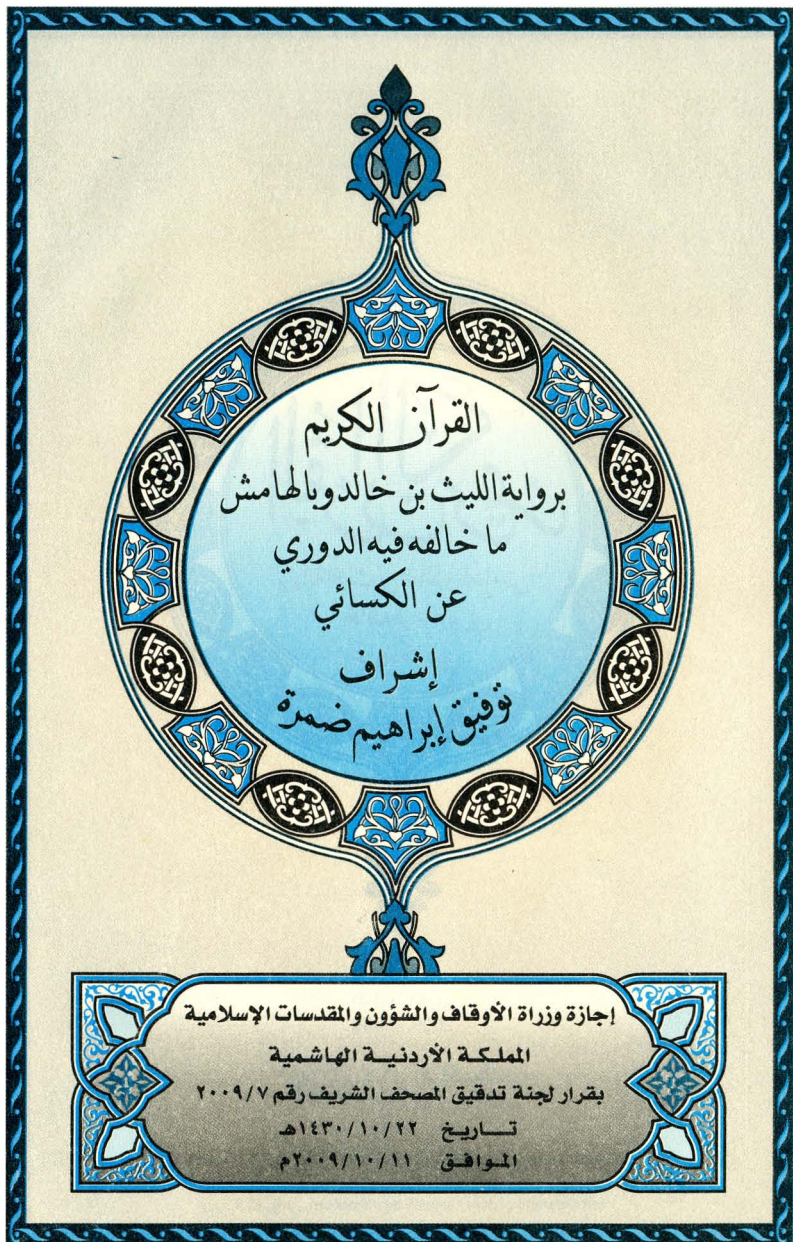 القرآن الكريم
برواية الليث بن خالد وبالهامش
ما خالفه فيه الدوري
عن الكسائي
إشراف
توفيق إبراهيم ضمرة
إجازة وزراة الأوقاف والشؤون والمقدسات الإسلامية
المملكة الأردنية الهاشمية
بقرار لجنة تدقيق المصحف الشريف رقم ٢٠٠٩/٧
تاريخ ١٤٣٠/١٠/٢٢هـ
الموافق ٢٠٠٩/١٠/١١م